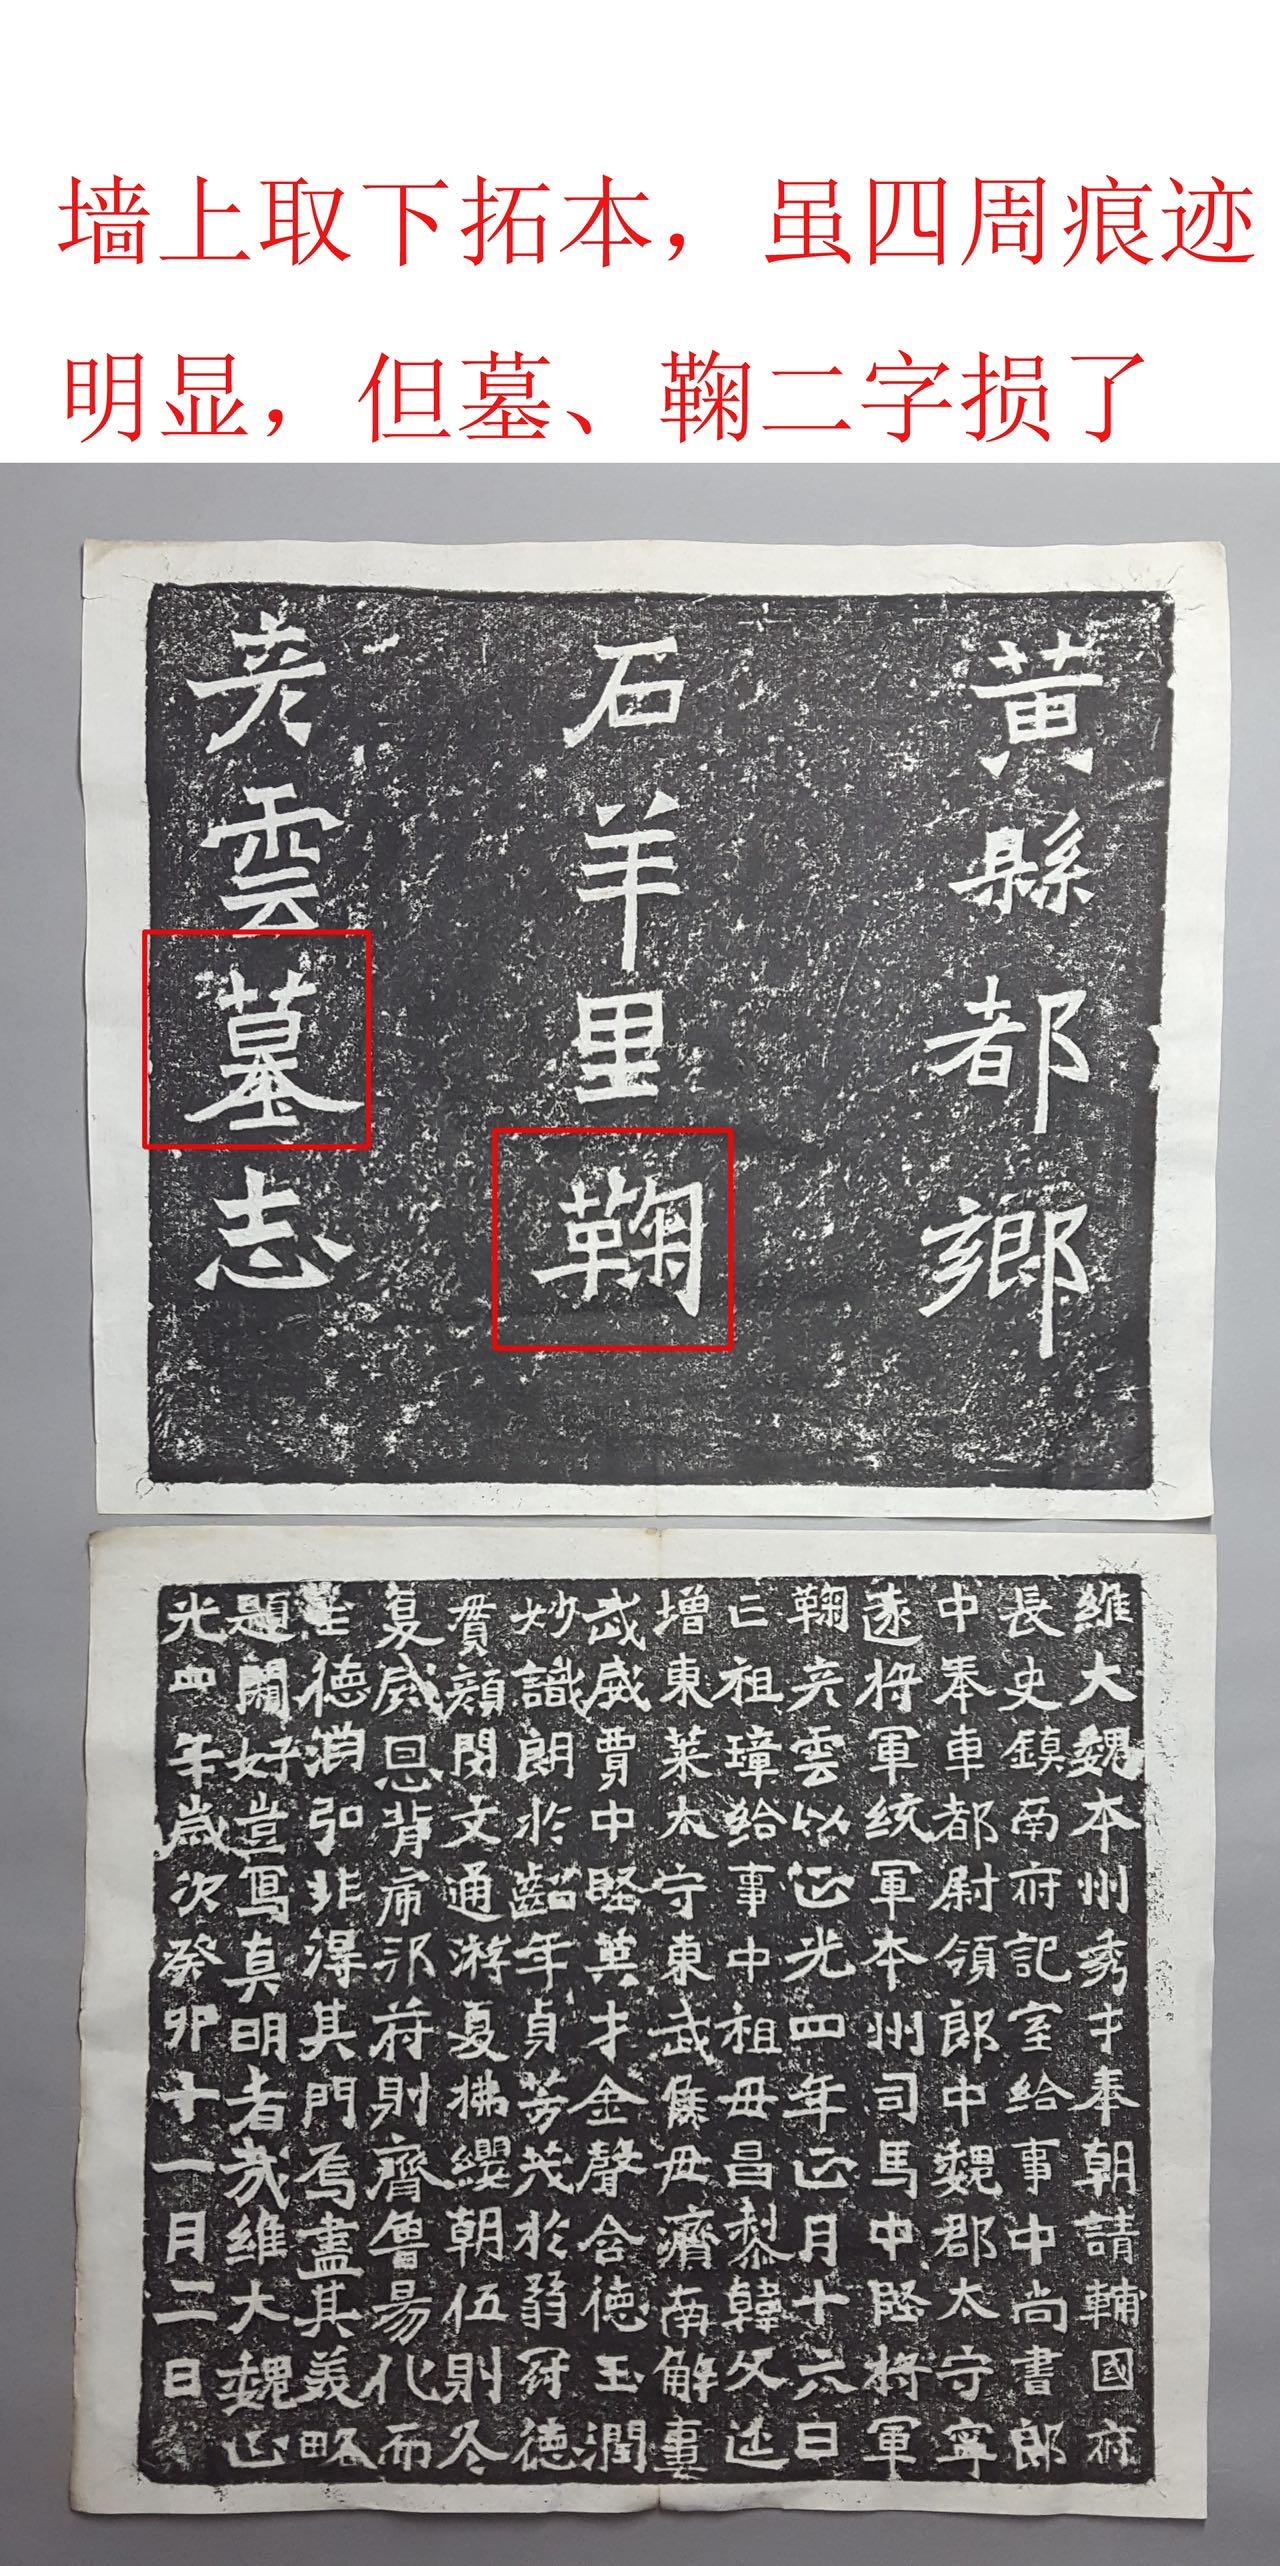 墙上取下拓本，虽四周痕迹
明显，但墓、鞠二字损了
黃縣都鄉
石羊里鞠
彦雲墓志
維大魏本州秀才奉朝請輔國府
長史鎮南府記室給事中尚書郎
中奉車都尉領郎中魏郡太守寧
遠將軍統軍本州司馬中堅將軍
鞠彦雲以正光四年正月十六日
亡祖璋給事中祖母昌黎韓父延
增東萊太守東武侯母濟南解妻
武威賈中堅英才金聲含德玉潤
妙識朗於齠年貞芳茂於弱冠德
貫顏閔文通游夏拂纓朝伍則冬
夏威恩背虎邪苻則齊魯易化而
徳消弘非得其門焉盡其美略
題闕好豈寫真明者哉維大魏正
光四年歲次癸卯十一月二日